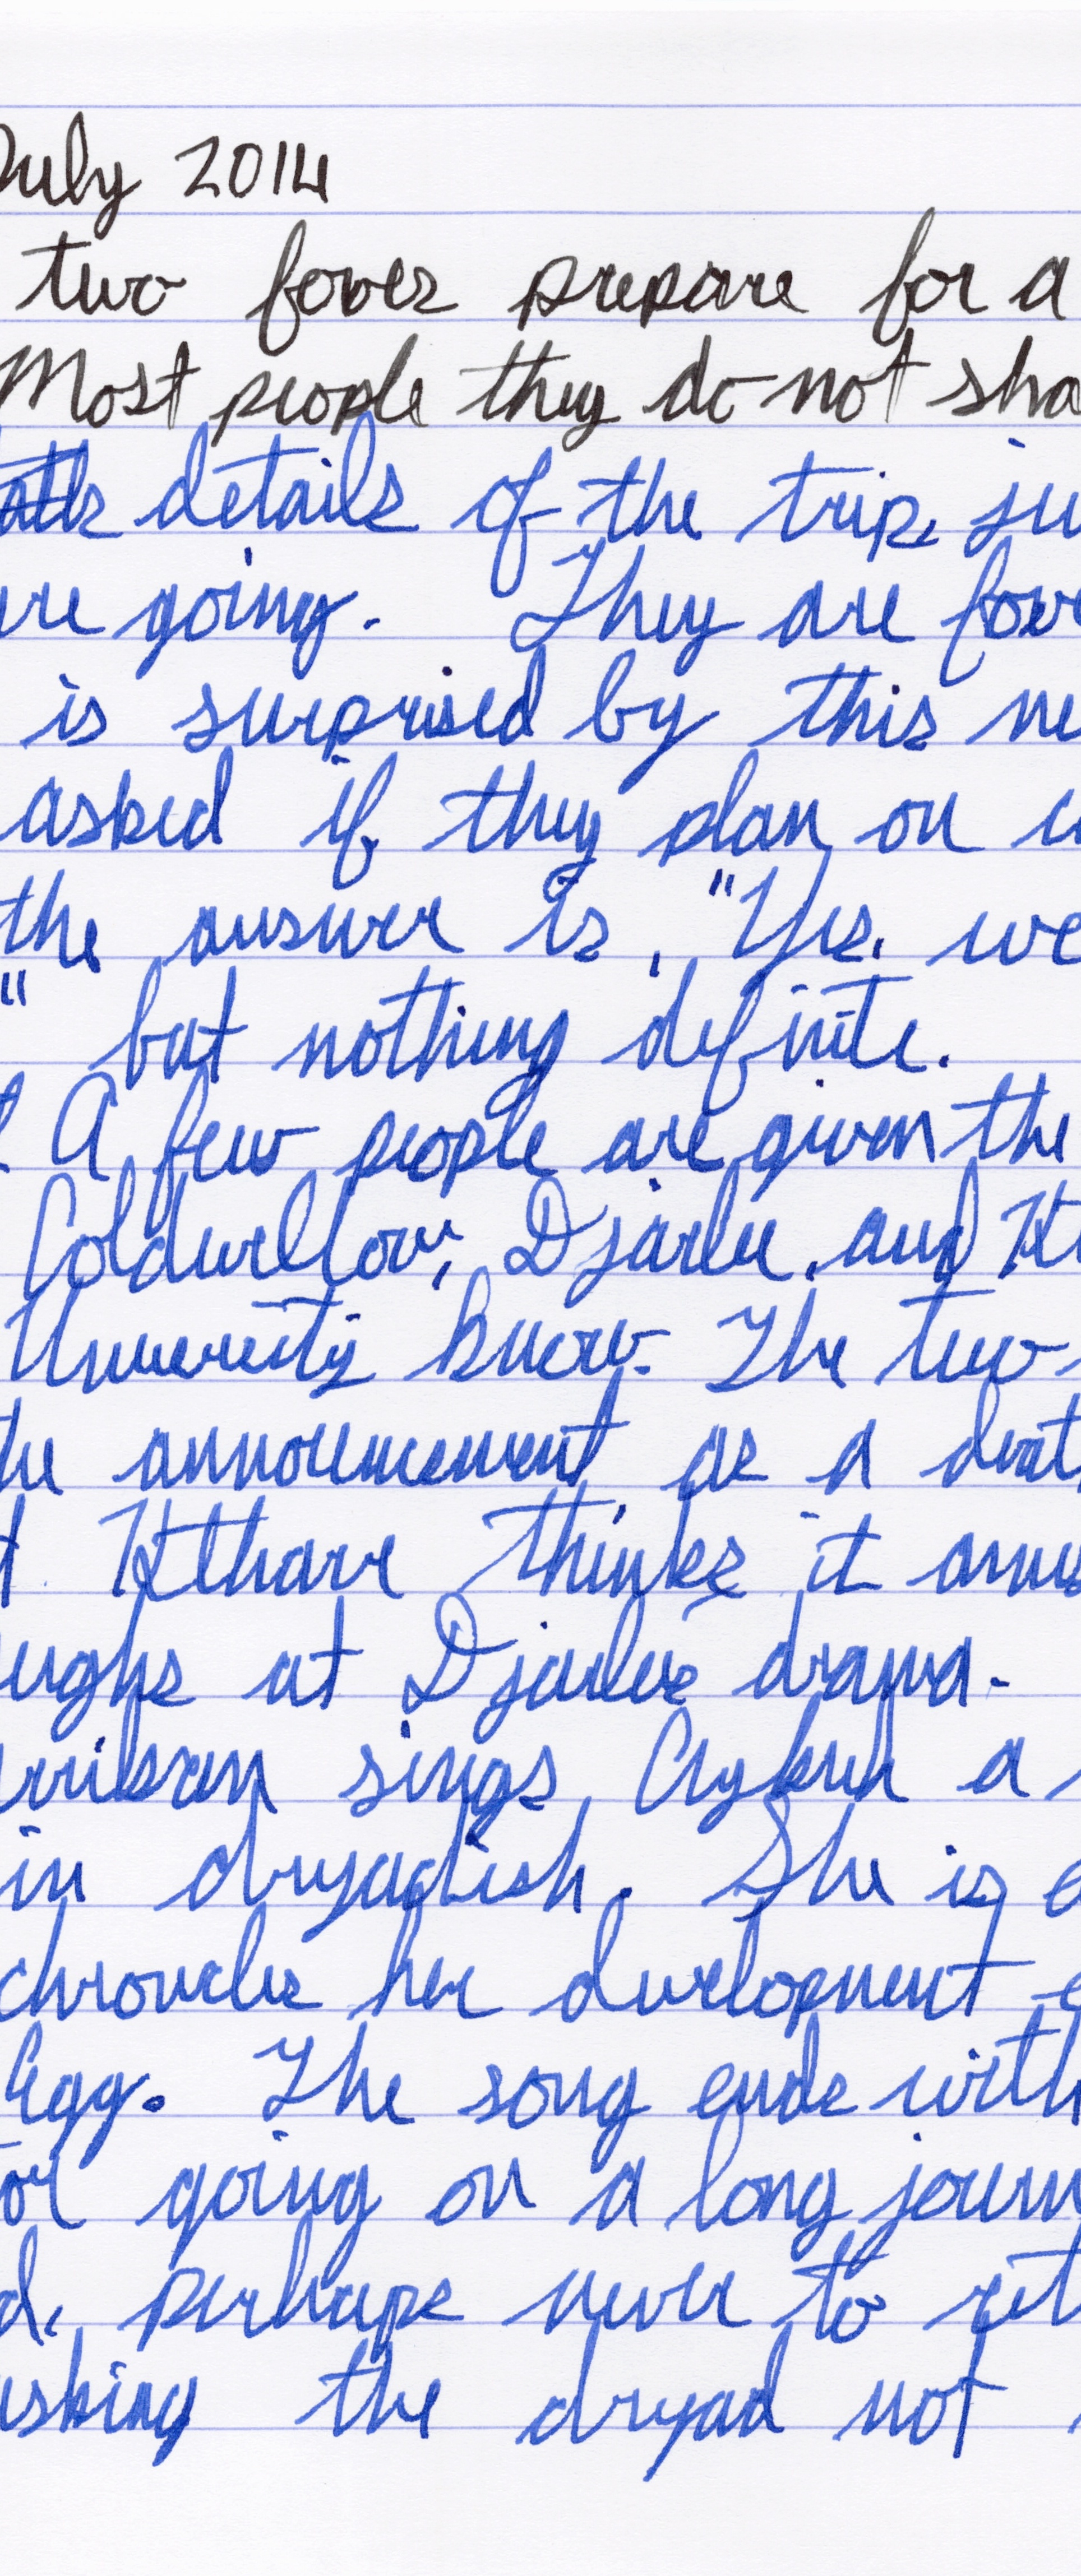 July 2014
two foves prepare for a
Most people they do not sha
details of the trip, su
are going. They are fove
is surprised by this ne
asked if they plan on
the answer is, "Yes, we
" but nothing definite.
A few people are given the
Coldwellow, Djarlee, and Kt
University know. The two
the announcement as a deat
Kthare thinks it amu
ughs at Djarlee drama.
sings a
in dryadish. She is
chronicles her development
Egg. The song ends with
for going on a long journ
d, perhaps never to ret
asking the dryad not